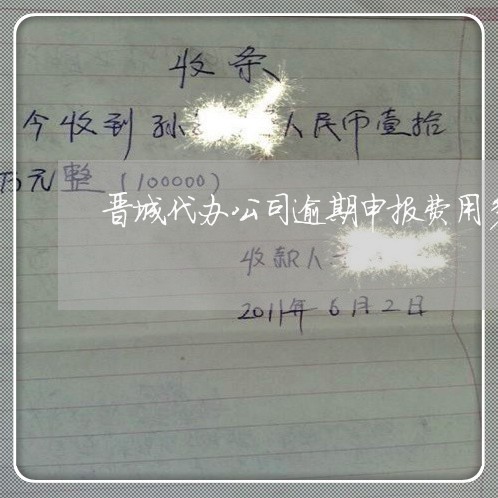 收条
今收到孙 人民币壹拾
万元整（100000）
晋城代办公司逾期申报费用
收款人
2011年6月2日